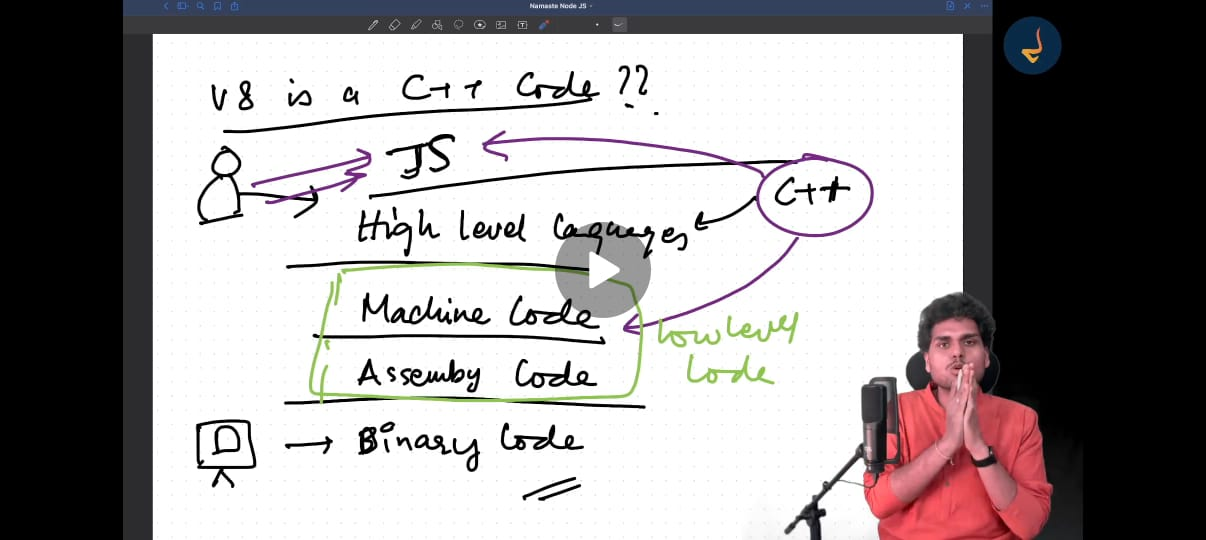 Namaste Node JS
V8 is a C++ Code ??
JS
C++
High level Languages
Machine Code
low level
Code
Assemby Code
Binary Code